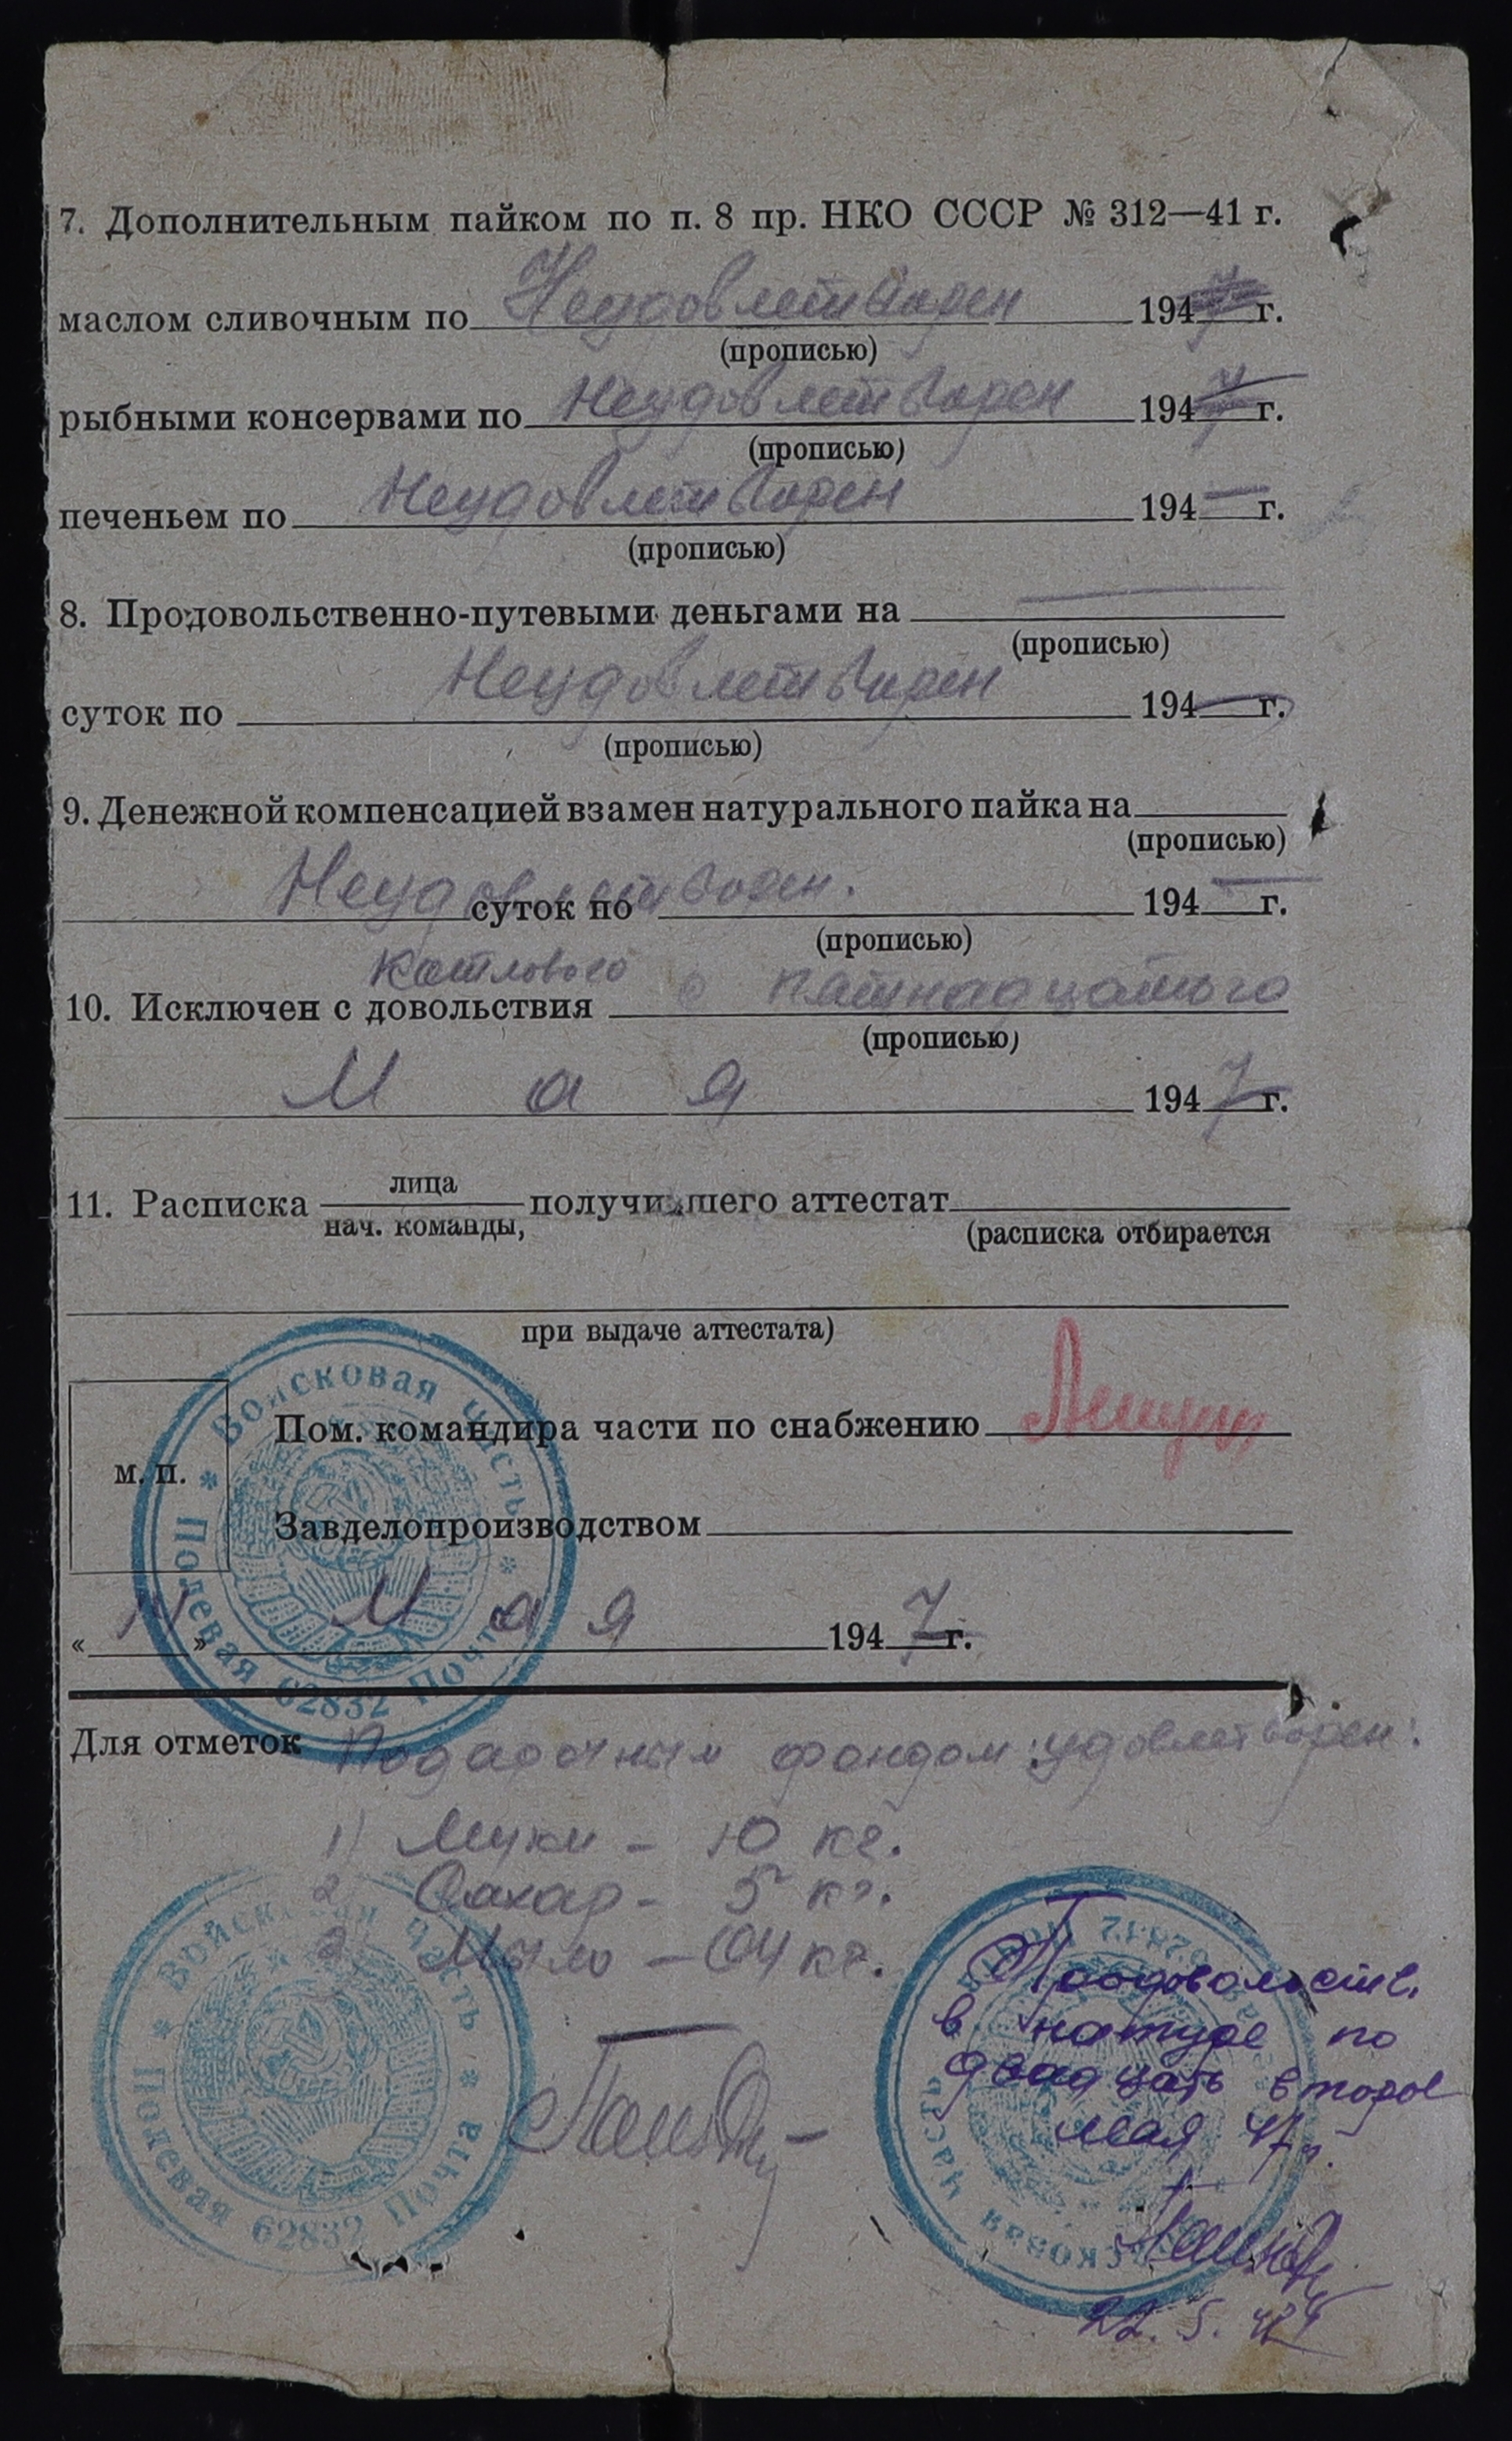 7. Дополнительным пайком по п. 8 пр. НКО СССР № 312—41 г.
маслом сливочным по Неудовлетворен 1947 г.
(прописью)
рыбными консервами по Неудовлетворен 1947 г.
(прописью)
печеньем по Неудовлетворен 194— г.
(прописью)
8. Продовольственно-путевыми деньгами на —
(прописью)
суток по Неудовлетворен 194— г.
(прописью)
9. Денежной компенсацией взамен натурального пайка на
(прописью)
Неудовлетворен. суток по 194— г.
(прописью)
котлового
10. Исключен с довольствия с пятнадцатого
(прописью)
Мая 1947 г.
11. Расписка лица получившего аттестат
нач. команды, (расписка отбирается
при выдаче аттестата)
Войсковая часть
Полевая Почта 62832
м. п.
Пом. командира части по снабжению
Завделопроизводством
«14» Мая 1947 г.
Для отметок Подарочным фондом удовлетворен:
1) Муки – 10 кг.
2 Сахар – 5 кг.
3 Мыло – 04 кг.
Войсковая часть
Полевая Почта 62832
Продовольств.
в натуре по
двадцать второе
мая 47 г.
22.5.47